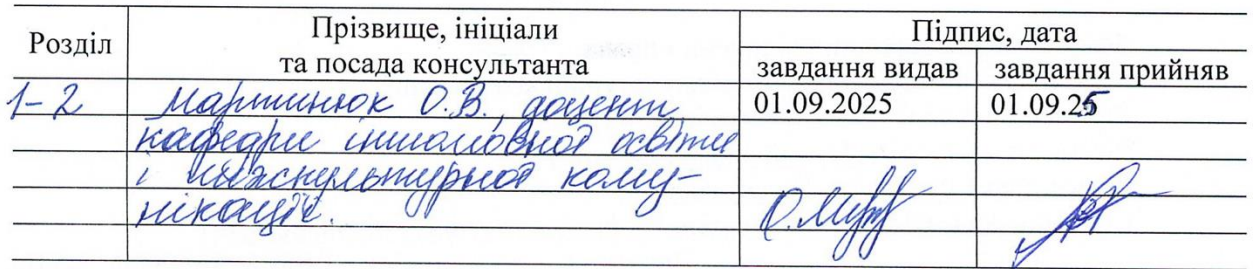 Розділ Прізвище, ініціали та посада консультанта Підпис, дата
завдання видав завдання прийняв
1-2 Мартинюк О.В., доцент 01.09.2025 01.09.25
кафедри іншомовної освіти
і міжкультурної кому-
нікації.